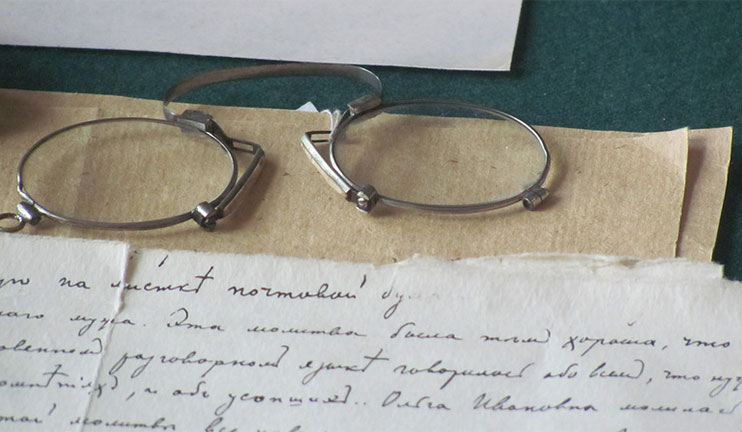 на листкѣ почтовой
мужа. Эта молитва была тѣмъ хороша, что
разговорномъ языкѣ говорилось обо всемъ, что
и объ усопшихъ.. Ольга Ивановна молилась
молитвы